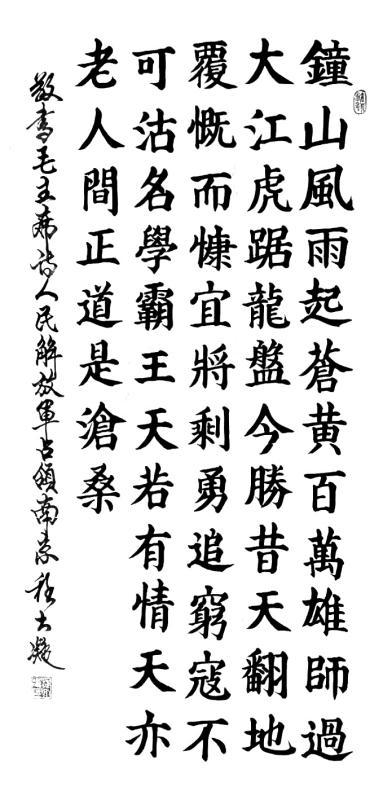 鐘山風雨起蒼黃百萬雄師過
大江虎踞龍盤今勝昔天翻地
覆慨而慷宜將剩勇追窮寇不
可沽名學霸王天若有情天亦
老人間正道是滄桑
敬書毛主席詩人民解放軍占領南京